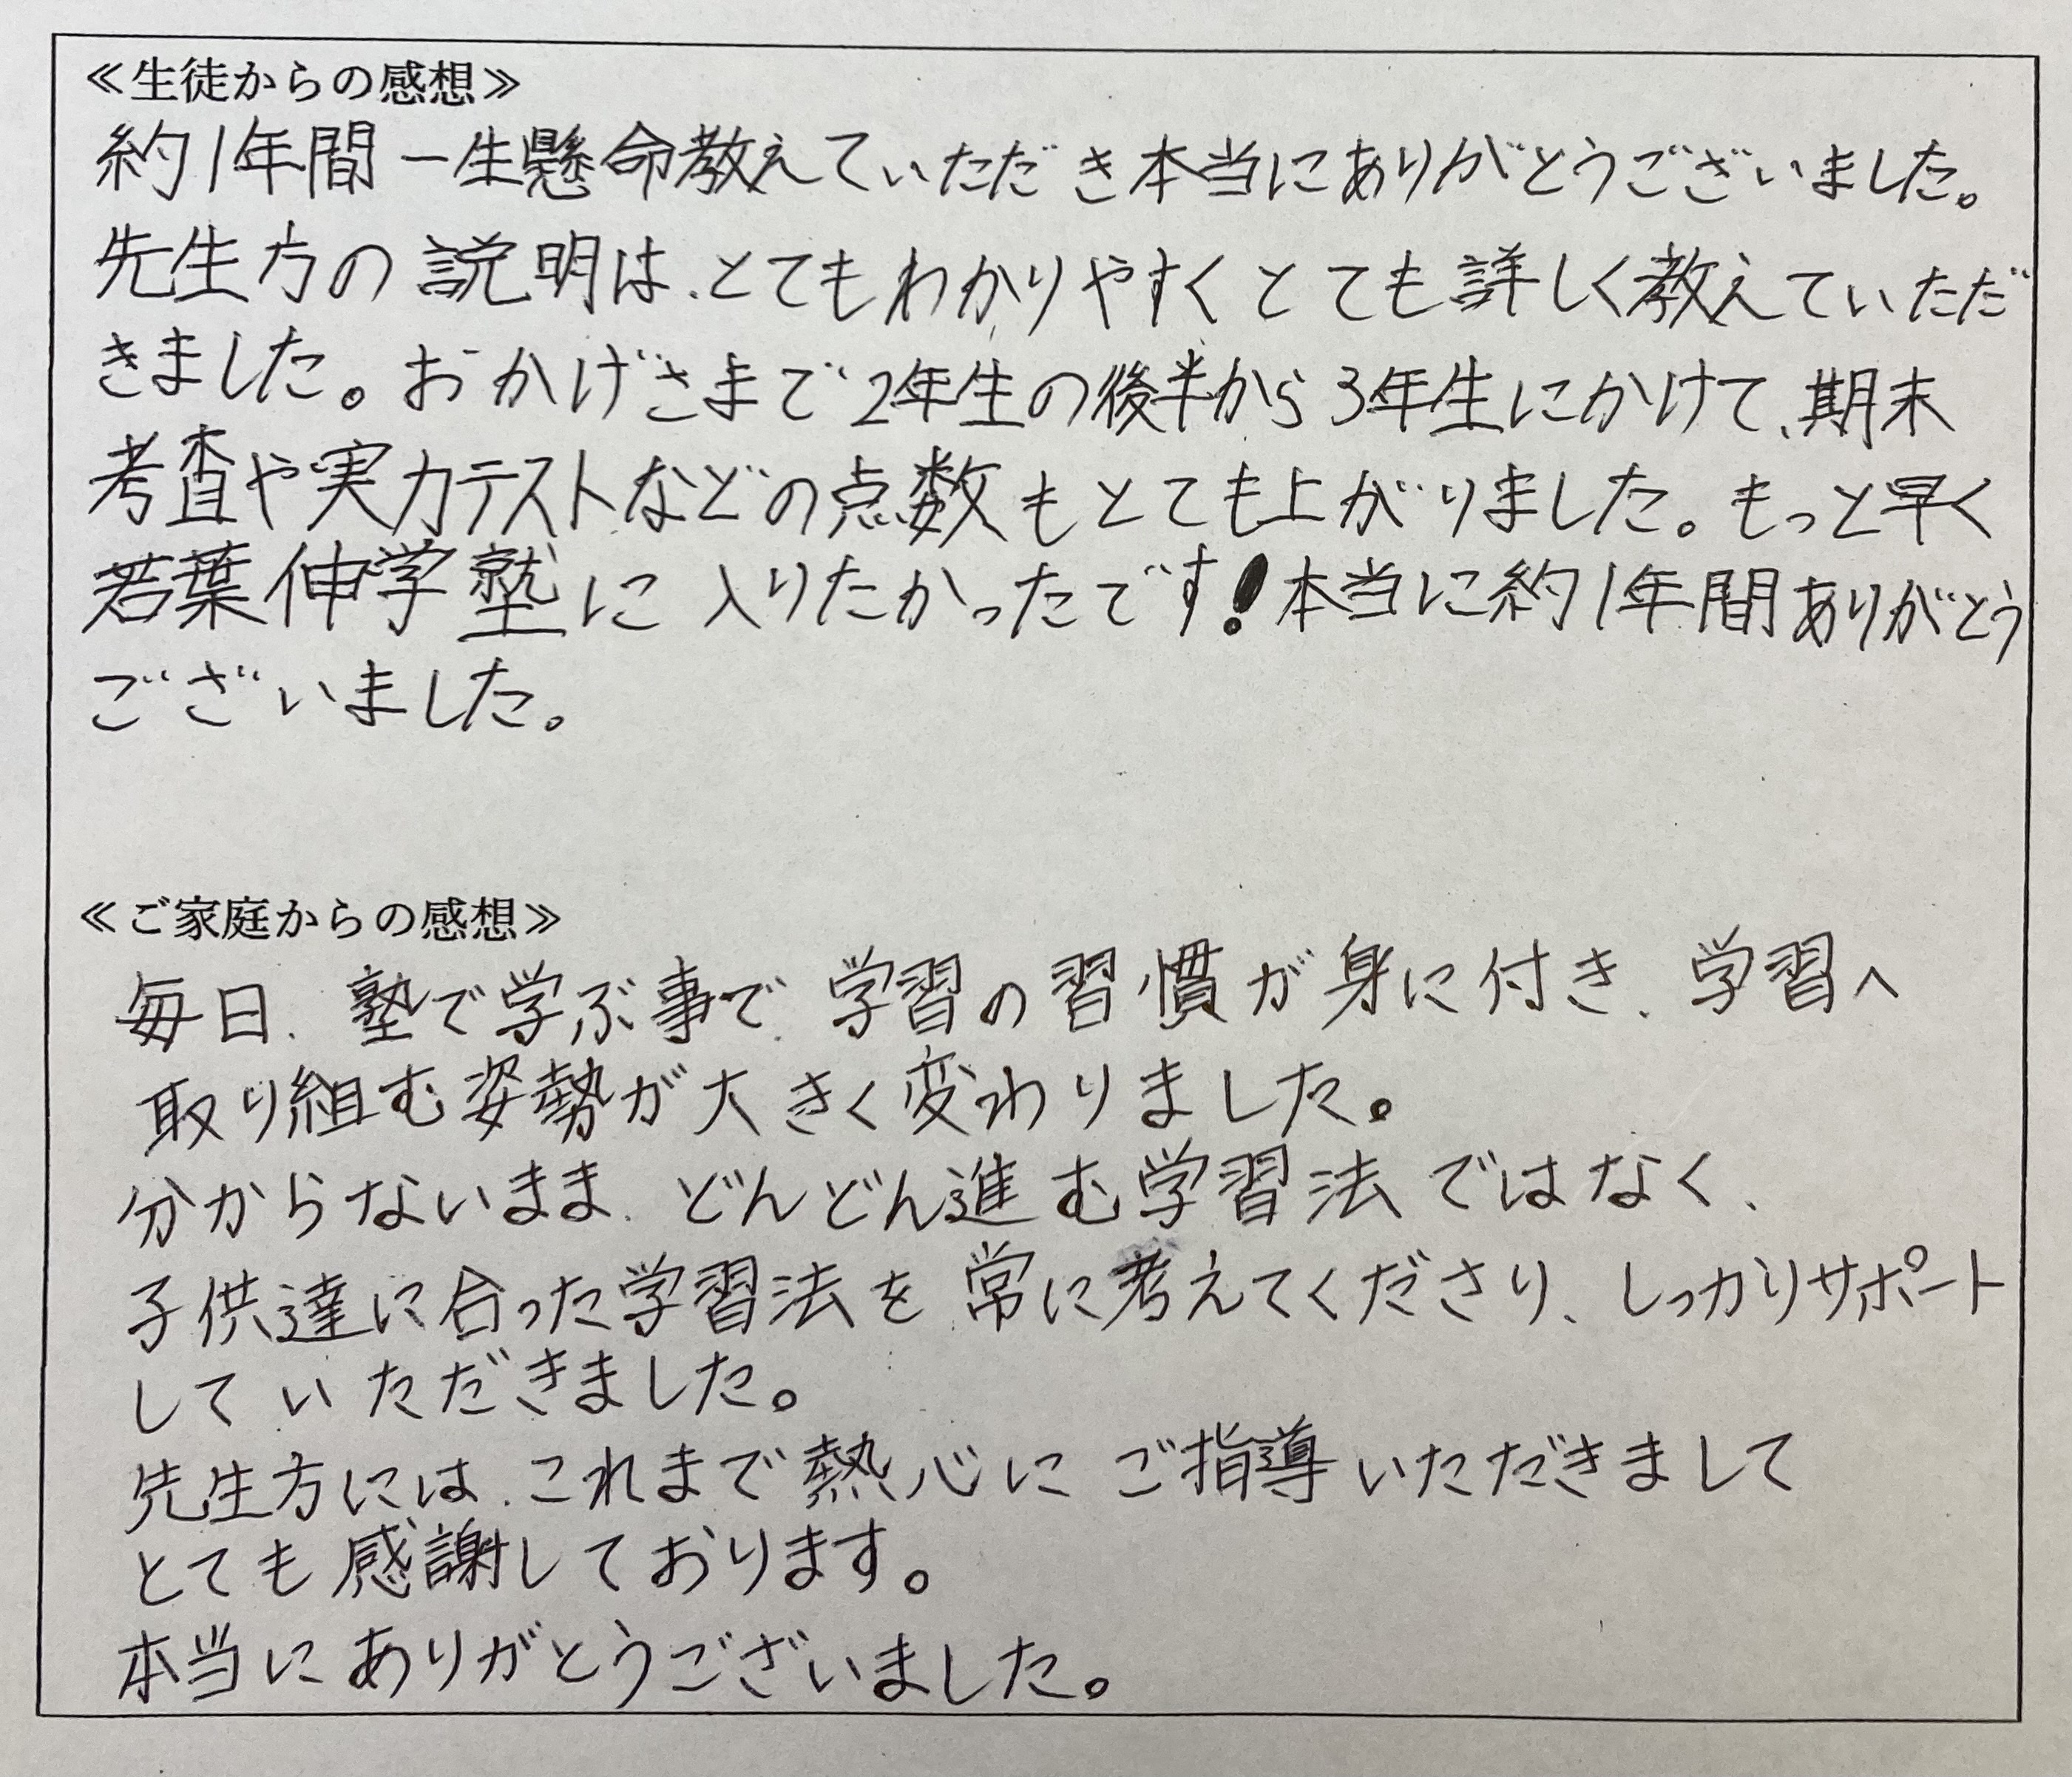 ≪生徒からの感想≫
約1年間一生懸命教えていただき本当にありがとうございました。
先生方の説明は、とてもわかりやすくとても詳しく教えていただ
きました。おかげさまで2年生の後半から3年生にかけて、期末
考査や実力テストなどの点数もとても上がりました。もっと早く
若葉伸学塾に入りたかったです!本当に約1年間ありがとう
ございました。
≪ご家庭からの感想≫
毎日、塾で学ぶ事で、学習の習慣が身に付き、学習へ
取り組む姿勢が大きく変わりました。
分からないまま、どんどん進む学習法ではなく、
子供達に合った学習法を常に考えてくださり、しっかりサポート
していただきました。
先生方には、これまで熱心にご指導いただきまして
とても感謝しております。
本当にありがとうございました。